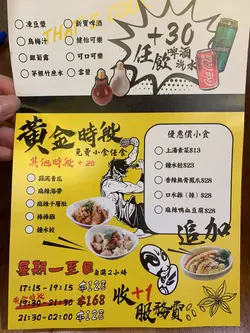 凍豆漿
烏梅汁
銀菊露
茅根竹蔗水
新寶啤酒
健怡可樂
可口可樂
雪碧
+30
任飲啤酒
汽水
黃金時段
免費小食任食
其他時段 +20
蒜茸青瓜
麻辣海帶
麻辣千層肚
棒棒雞
鐘水餃
優惠價小食
上湯雲茸$13
鐘水餃$23
香辣無骨鳳爪$28
口水雞(辣)$28
麻辣鴨血豆腐$28
追加
星期一至日 每滿2小時
17:15 - 19:15
19:30 - 21:30 $168
21:30 - 02:00 $128
收+1
服務費